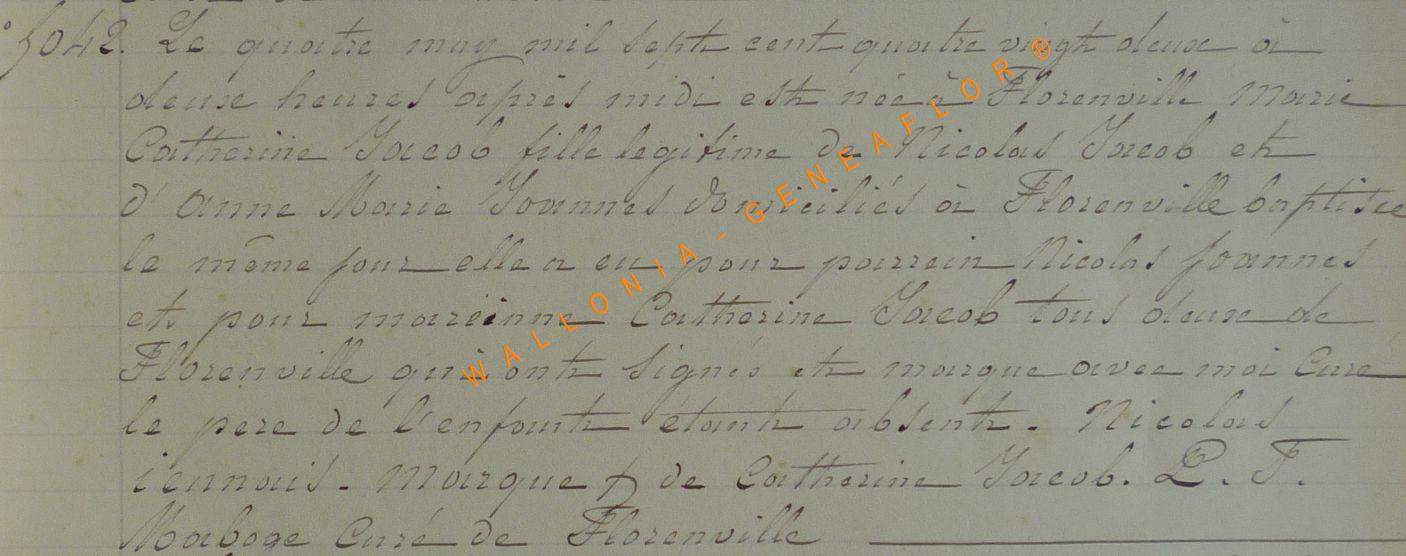 5042. Le quatre may mil sept cent quatre vingt deux à
deux heures après midi est née à Florenville Marie
Catherine Jacob fille legitime de Nicolas Jacob et
d'Anne Marie Joannes domiciliés à Florenville baptisée
le même jour elle a eu pour parrein Nicolas Joannes
et pour mareinne Catherine Jacob tous deux de
Florenville qui ont signés et marque avec moi Curé
le pere de l'enfant étant absent. Nicolas
iennais. Marque + de Catherine Jacob. L. F.
Maboge Curé de Florenville
WALLONIA - GENEAFLOR ®